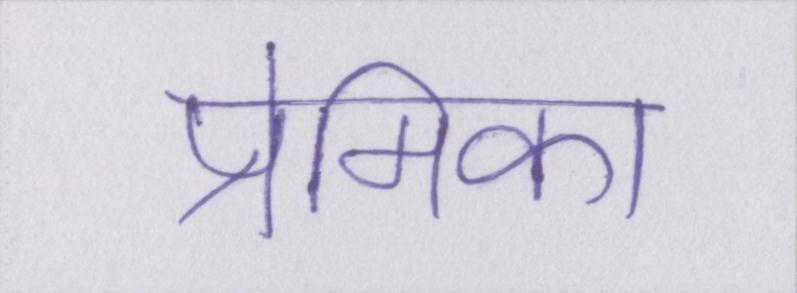 प्रेमिका